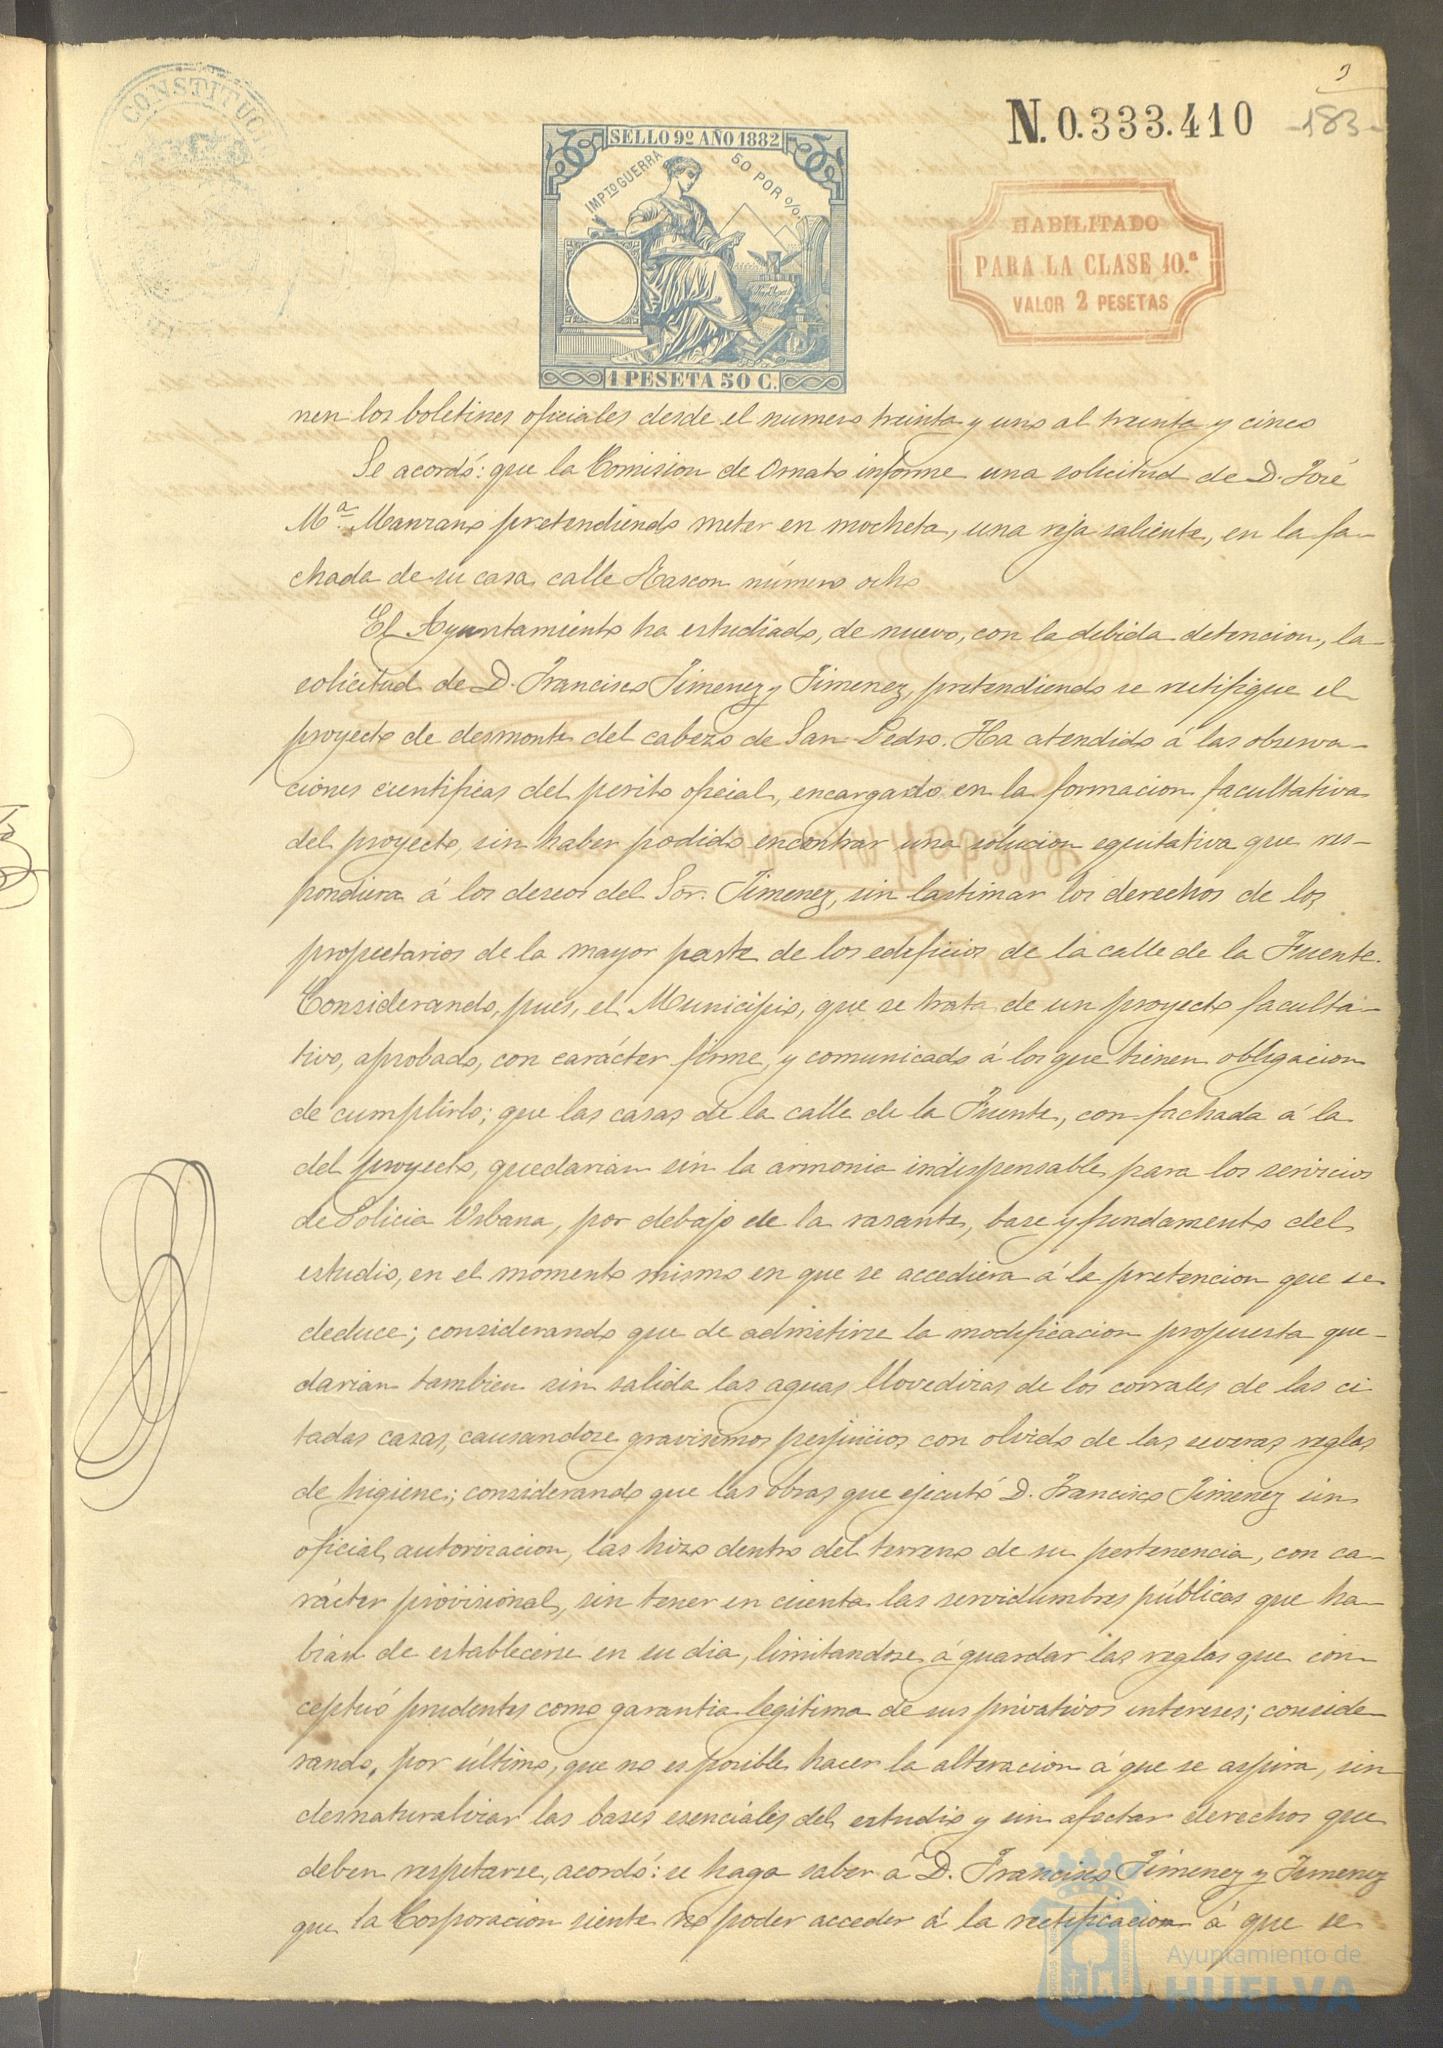 CONSTITUCIO
9
-183-
N. 0.333.410
SELLO 9º AÑO 1882
IMPTO GUERRA 50 POR %
1 PESETA 50 C.
HABILITADO
PARA LA CLASE 10.ª
VALOR 2 PESETAS
nen los boletines oficiales desde el numero treinta y uno al treinta y cinco
Se acordó: que la Comision de Ornato informe una solicitud de D. José
Mª Manzano pretendiendo meter en mocheta, una reja saliente, en la fa-
chada de su casa calle Rascon número ocho
El Ayuntamiento ha estudiado, de nuevo, con la debida detencion, la
solicitud de D. Francisco Jimenez y Jimenez, pretendiendo se rectifique el
proyecto de desmonte del cabezo de San Pedro. Ha atendido á las observa-
ciones cientificas del perito oficial, encargado en la formacion facultativa
del proyecto, sin haber podido encontrar una solucion equitativa que res-
pondiera á los deseos del Sor. Jimenez, sin lastimar los derechos de los
propietarios de la mayor parte de los edificios de la calle de la Fuente.
Considerando, pues, el Municipio, que se trata de un proyecto faculta-
tivo, aprobado, con carácter firme, y comunicado á los que tienen obligacion
de cumplirlo; que las casas de la calle de la Fuente, con fachada á la
del proyecto, quedarian sin la armonia indispensable para los servicios
de Policia Urbana, por debajo de la rasante, base y fundamento del
estudio, en el momento mismo en que se accediera á la pretencion que se
deduce; considerando que de admitirse la modificacion propuesta que-
darian tambien sin salida las aguas llovedizas de los corrales de las ci
tadas casas, causandose gravisimos perjuicios con olvido de las severas reglas
de higiene; considerando que las obras que ejecutó D. Francisco Jimenez sin
oficial autorizacion, las hizo dentro del terreno de su pertenencia, con ca-
rácter provisional, sin tener en cuenta las servidumbres públicas que ha-
bian de establecerse en su dia, limitandose á guardar las reglas que con-
ceptuó prudentes como garantia legítima de sus privativos intereses; conside
rando, por último, que no es posible hacer la alteracion á que se aspira, sin
desnaturalizar las bases esenciales del estudio y sin afectar derechos que
deben respetarse, acordó: se haga saber á D. Francisco Jimenez y Jimenez
que la Corporacion siente no poder acceder á la rectificacion á que se
Ayuntamiento de
HUELVA